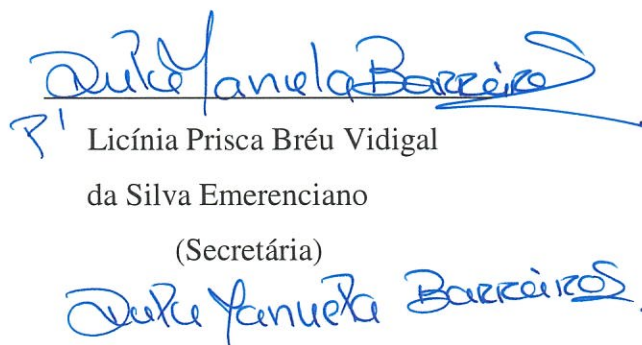 Dulce Manuela Barreiros
P' Licínia Prisca Bréu Vidigal
da Silva Emerenciano
(Secretária)
Dulce Manuela Barreiros